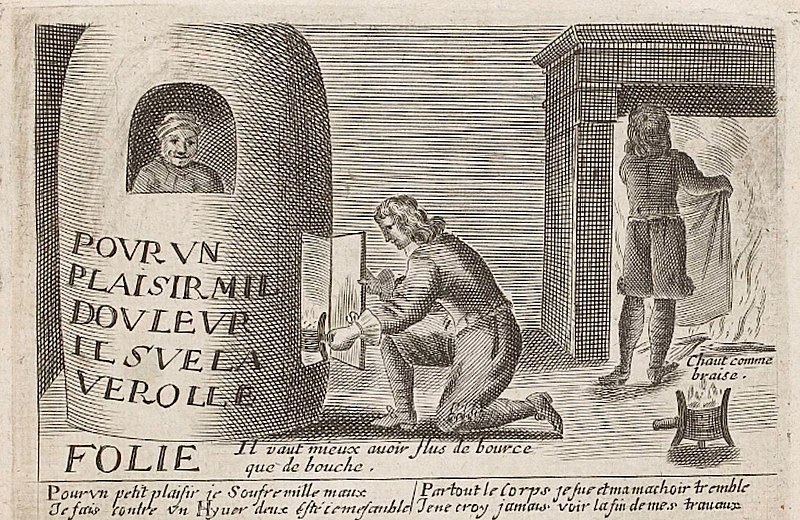 POVR VN
PLAISIR MIL
DOVLEVR
IL SVE LA
VEROLLE
Chaut comme
braise.
FOLIE
Il vaut mieux auoir flus de bource
que de bouche.
Pour vn petit plaisir je Soufre mille maux
Je fais contre vn Hyver deux Esté ce me semble
Partout le Corps je sue et ma machoir tremble
Je ne croy jamais voir la fin de mes travaux